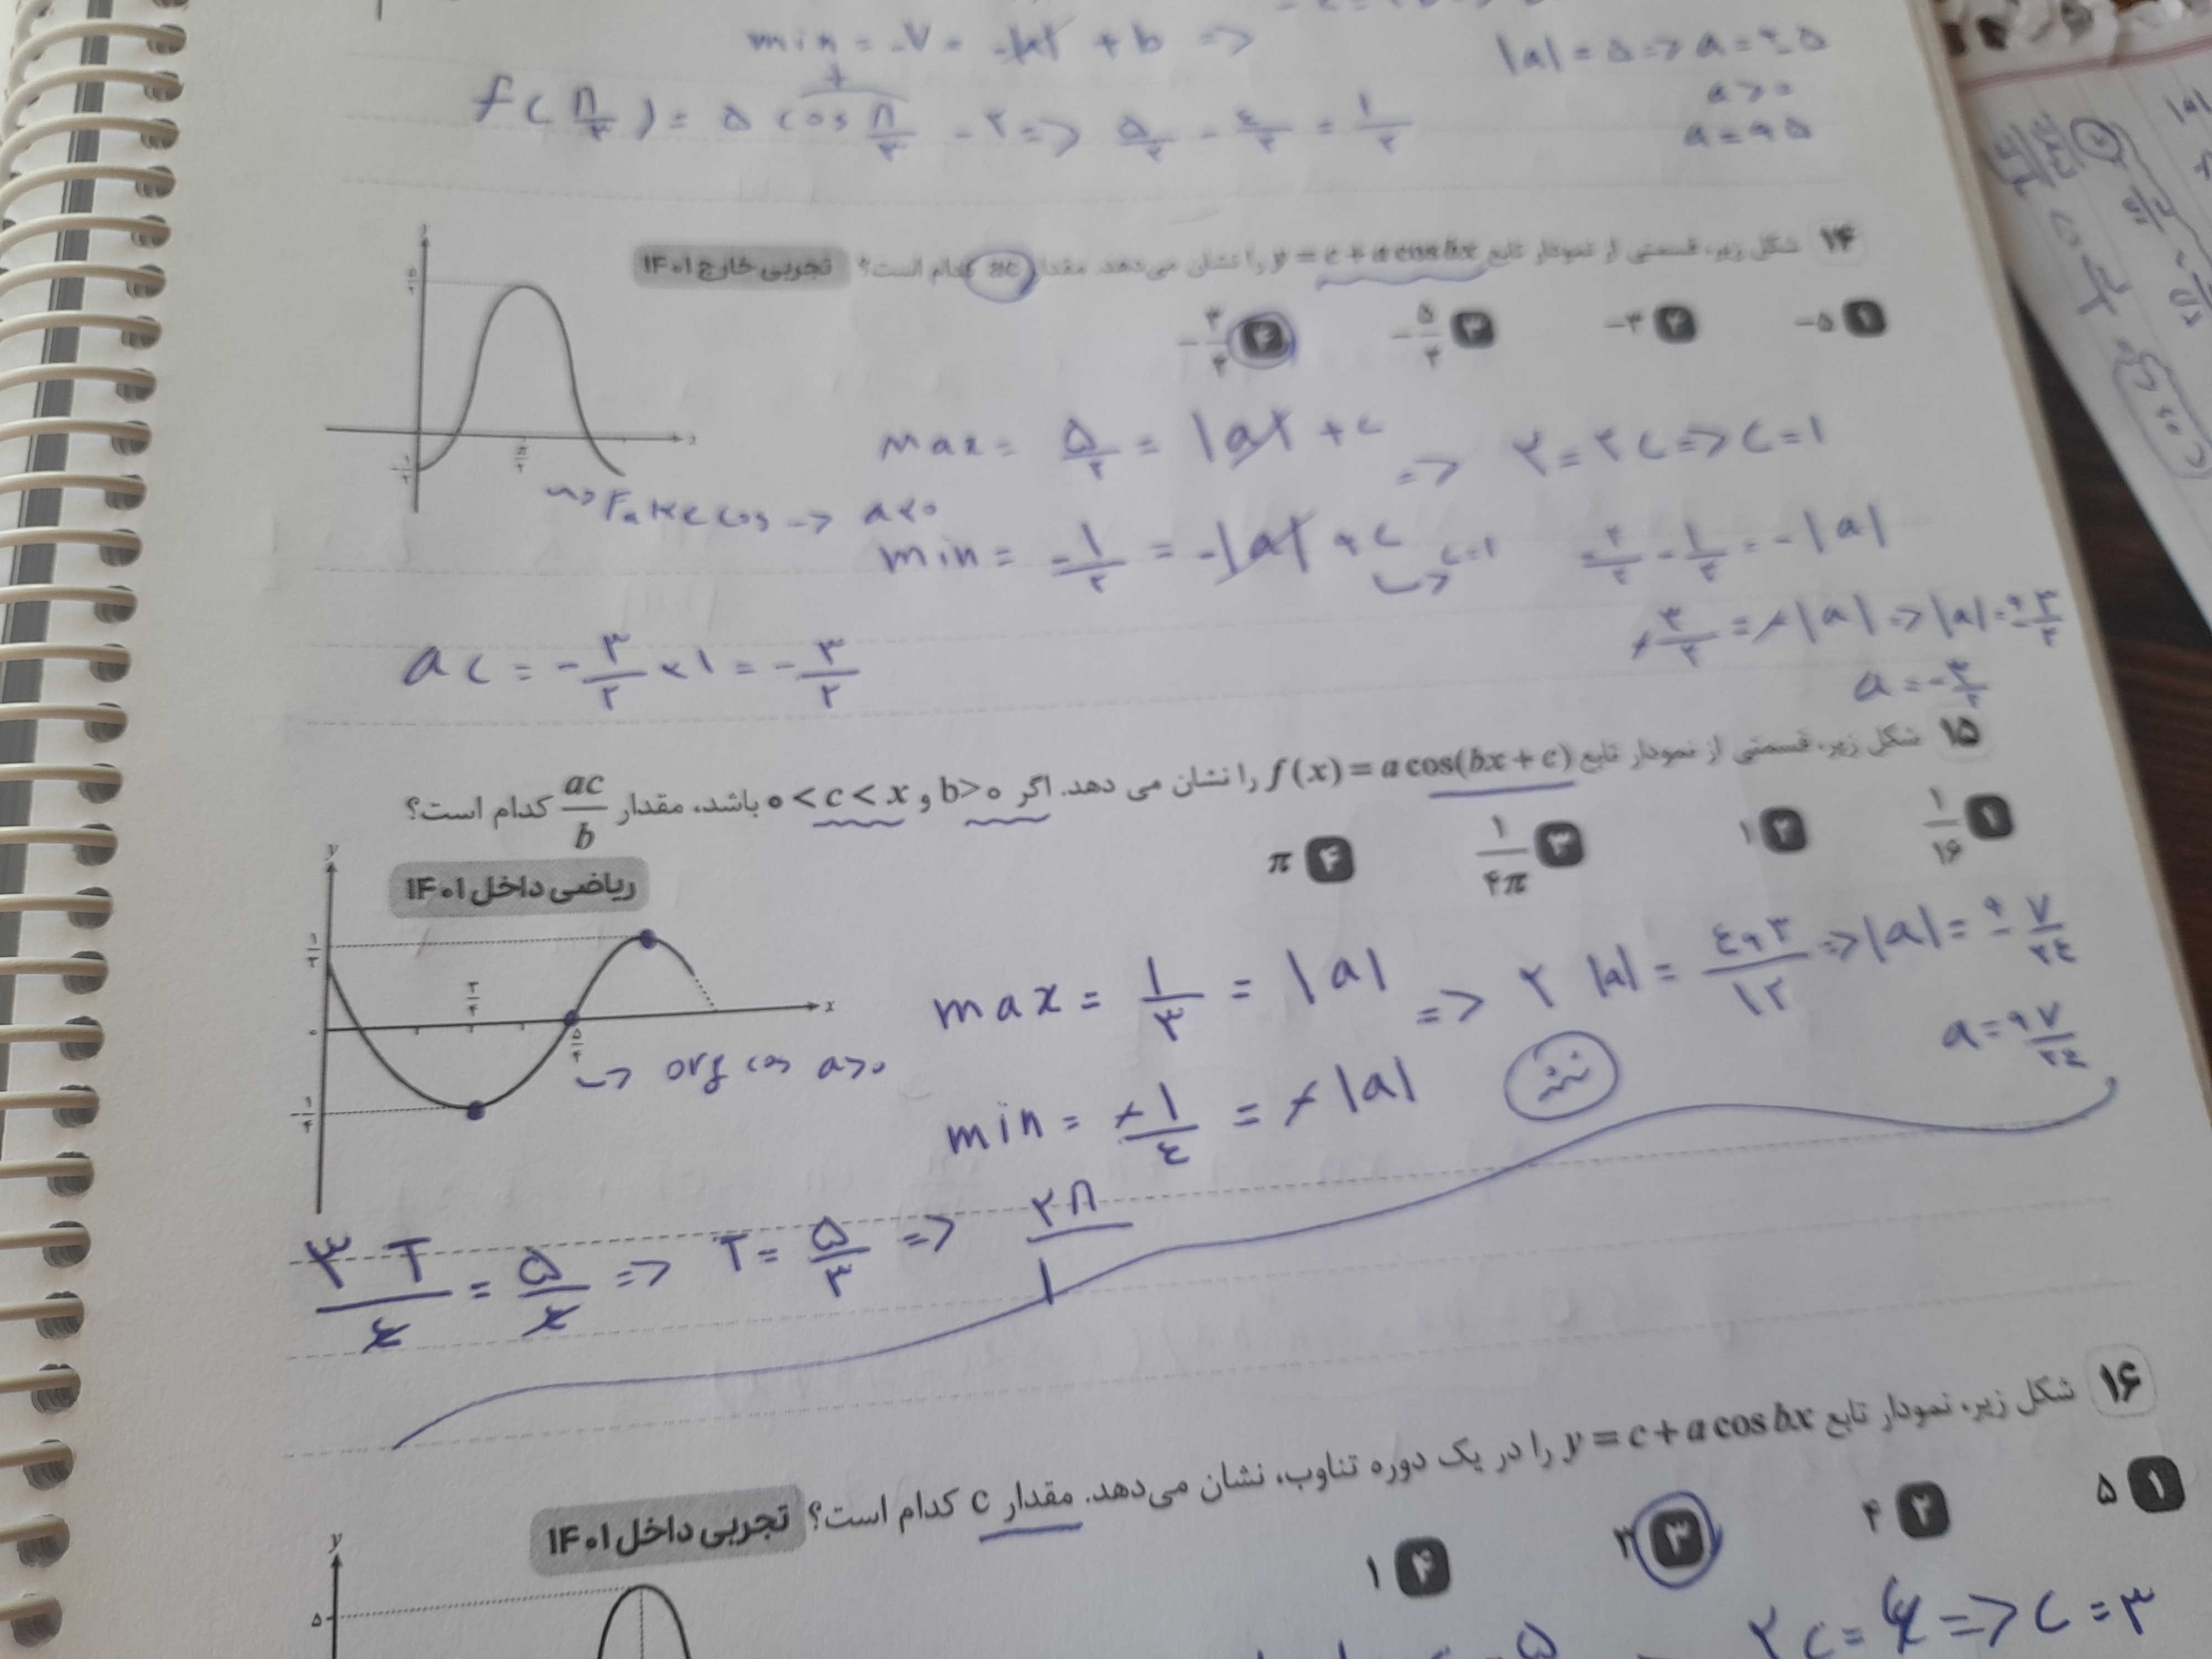 min = -۷ = -|a| + b =>
|a| = ۵ => a = ±۵
a > ۰
a = +۵
f(π/۳) = ۵ cos π/۳ - ۲ => ۵/۲ - ٤/۲ = ۱/۲
۱۴ شکل زیر، قسمتی از نمودار تابع y = c + a cos bx را نشان می‌دهد. مقدار ac کدام است؟ تجربی خارج ۱۴۰۱
۱ -۵ ۲ -۳ ۳ -۵/۲ ۴ -۳/۲
y
x
۵/۲
-۱/۲
π/۲
max = ۵/۲ = |a| + c => ۲ = ۲c => c = ۱
Fake cos -> a<۰
min = -۱/۲ = -|a| + c c=۱ -۲/۲ - ۱/۲ = -|a|
-۳/۲ = -|a| => |a| = ±۳/۲
a = -۳/۲
ac = -۳/۲ × ۱ = -۳/۲
۱۵ شکل زیر، قسمتی از نمودار تابع f(x) = a cos(bx + c) را نشان می دهد. اگر b>۰ و ۰ < c < x باشد، مقدار ac/b کدام است؟
۱ ۱/۱۶ ۲ ۱ ۳ ۱/۴π ۴ π
ریاضی داخل ۱۴۰۱
y
x
-۱/۴
۳/۴
۵/۴
org cos a>۰
max = ۱/۳ = |a| => ۲|a| = ٤+۳/۱۲ => |a| = ±۷/۲٤
a = +۷/۲٤
min = -۱/٤ = -|a|
۳T/٤ = ۵/٤ => T = ۵/۳ => ۲π/۱
۱۶ شکل زیر، نمودار تابع y = c + a cos bx را در یک دوره تناوب، نشان می‌دهد. مقدار c کدام است؟ تجربی داخل ۱۴۰۱
۱ ۵ ۲ ۴ ۳ ۳ ۴ ۱
y
۵
۲c = ۶ => c = ۳